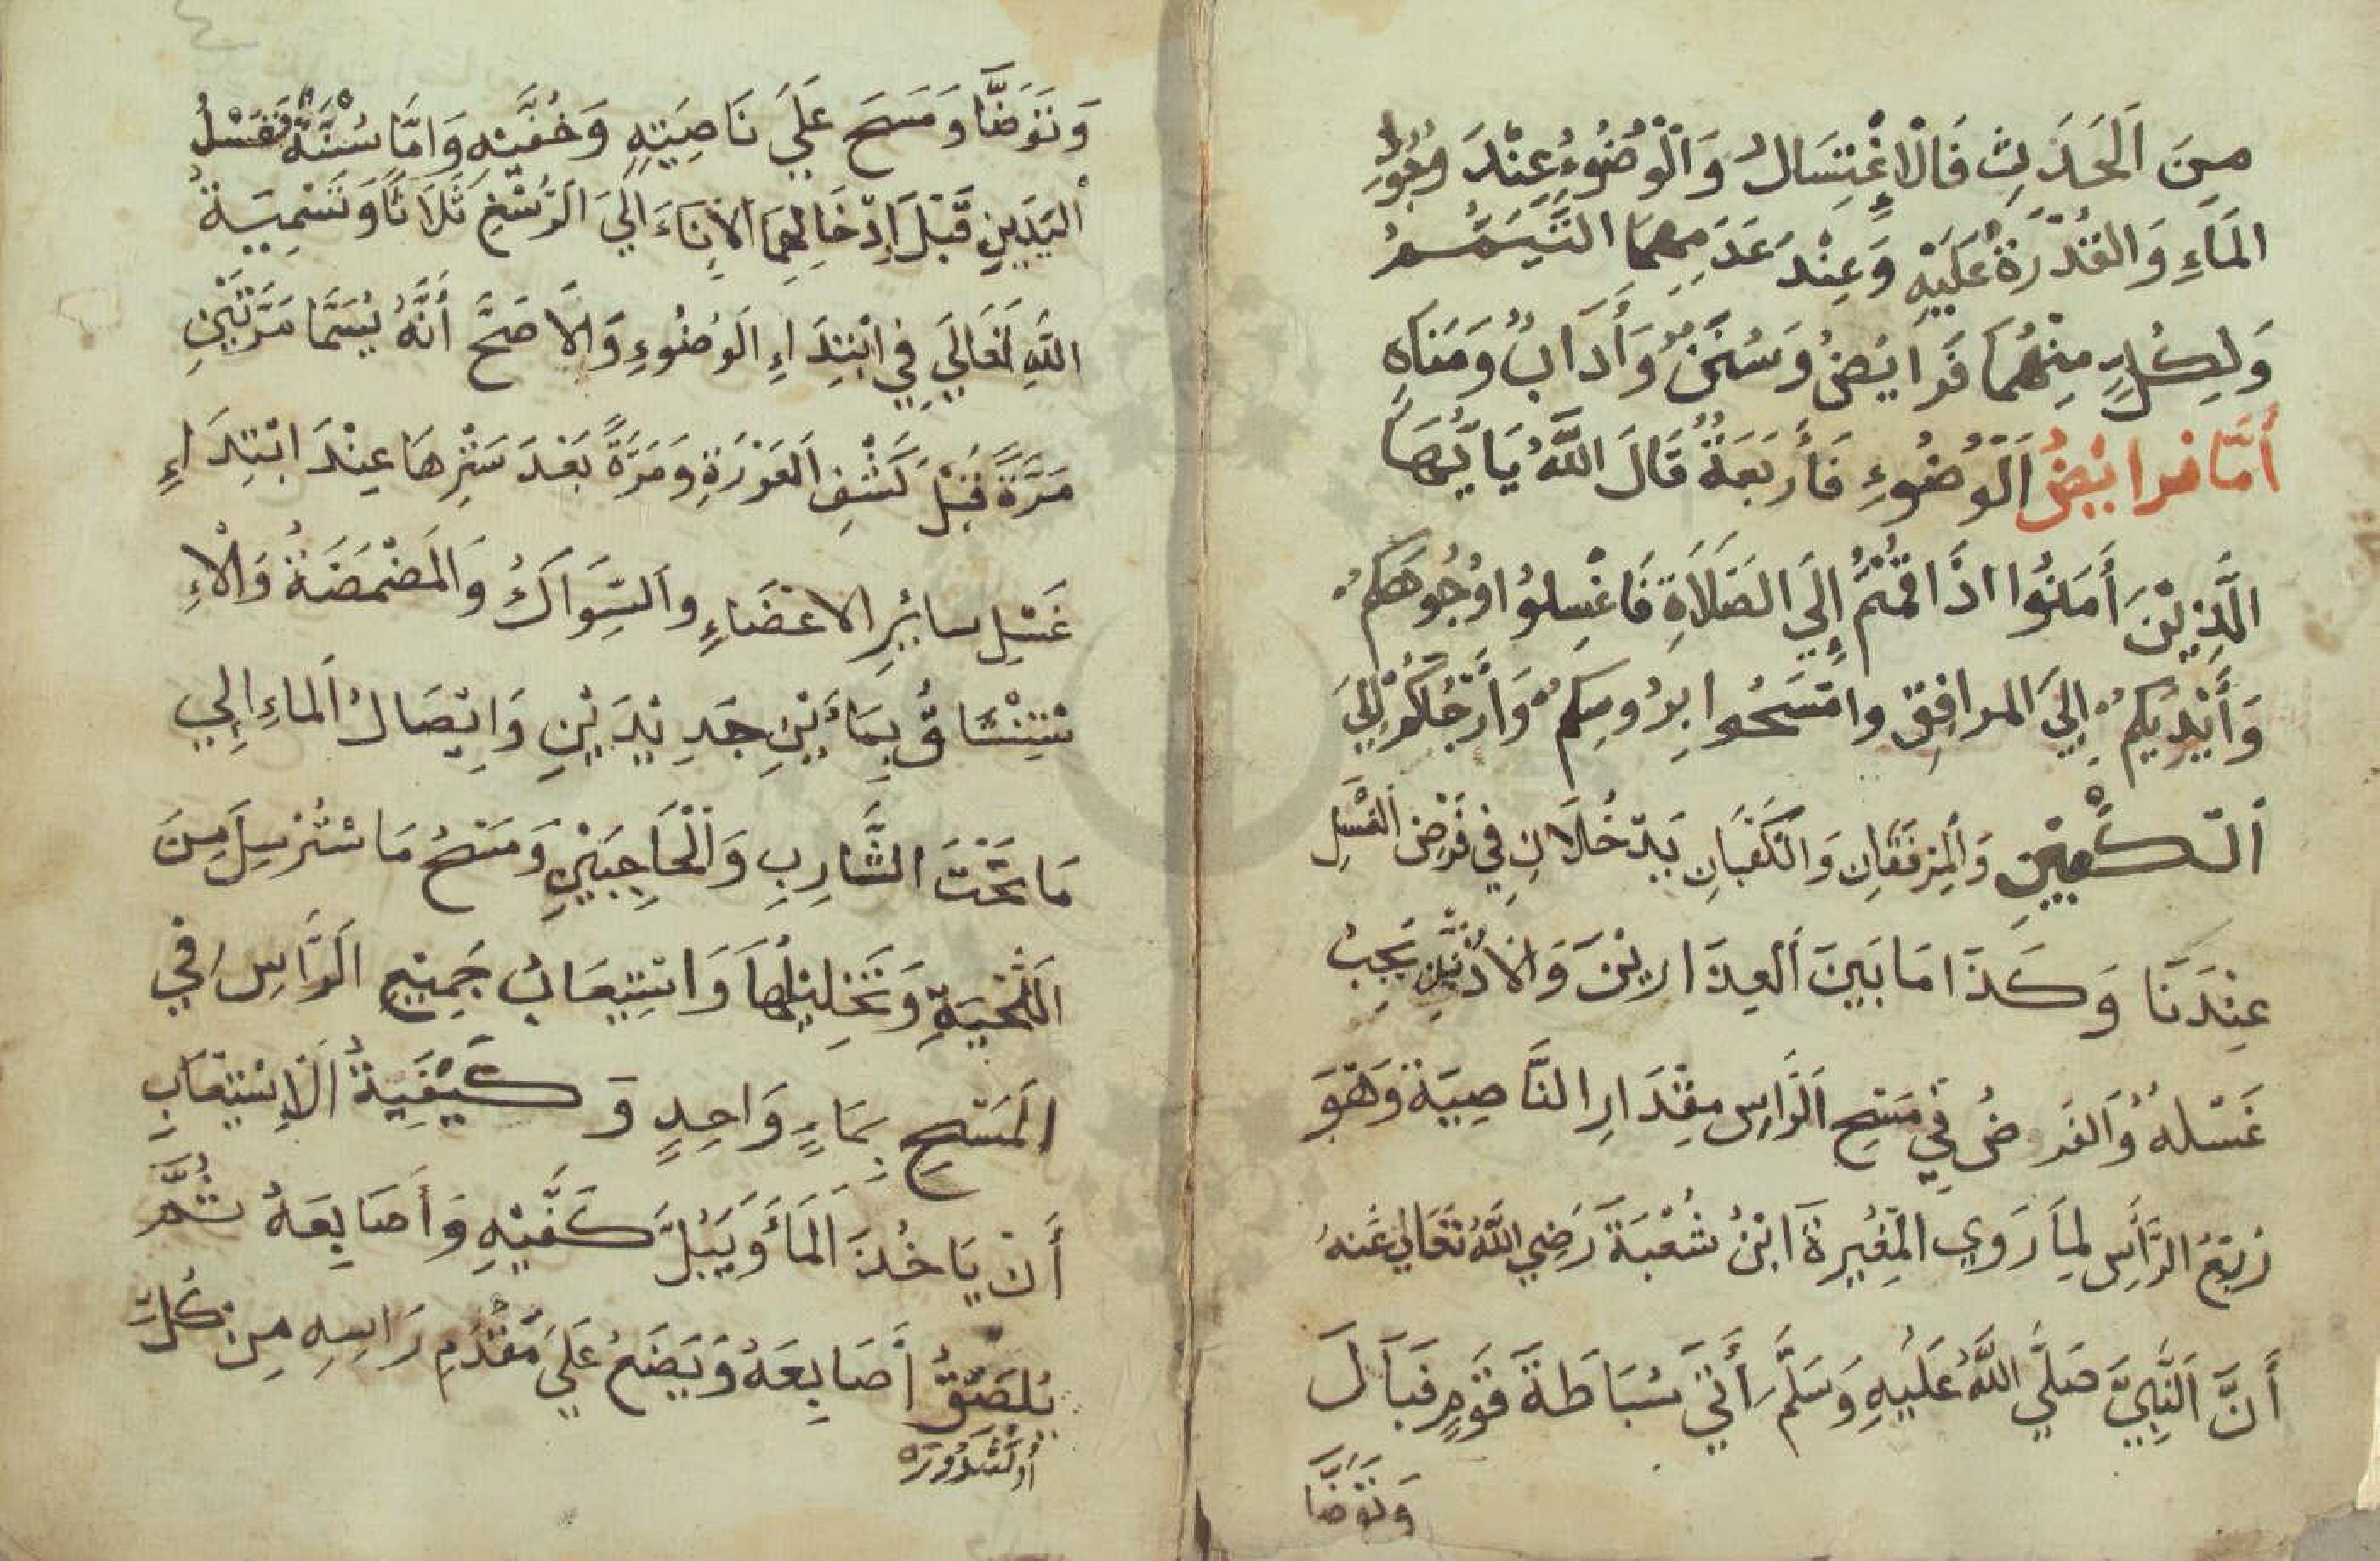 مِنَ اَلْحَدَثِ فَالْاِغْتِسَالُ وَالْوُضُوءُ عِنْدَ وُجُودِ
المَاءِ وَالقُدْرَةُ عَلَيْهِ وَعِنْدَ عَدَمِهِمَا التَّيَمُّمُ
وَلِكُلٍّ مِنْهُمَا فَرَايُضُ وَسُنَنٌ وَأَدَابٌ وَمَنَاهٍ
أَمَّا فرايُضُ اَلْوُضُوءِ فَأَرْبَعَةٌ قَالَ اللَّهُ يَايُّهَا
الَّذِيْنَ أَمَنُوا اذَا قُمْتُمْ إِلَي الصَّلَاةِ فَاغْسِلُوا وُجُوهَكُمْ
وَأَيْدِيَكُمْ اِلَيَ المرافِقِ وامْسَحُوا بِرُوسِكُمْ وَأَرْجُلَكُمْ اِلَيَ
اَلْكَعْبَيْنِ وَالمِرْفَقَانِ وَالْكَعْبَانِ يَدْخُلَانِ فِي فَرْضِ الغَسْلِ
عِنْدَنَا وَكَذَا مَا بَيْنَ اَلعِذَارينَ وَالاُذُنَيْنِ يَجِبُ
غَسْلهُ وَاَلفَرضُ فِي مَسْحِ اَلرَّاسِ مِقْدَارِ النَّاصِيَةِ وَهُوَ
رُبْعُ الرَّأْسِ لِمَا رَوَي المُغِيرَةَ ابْنُ شُعْبَةَ رَضِي اللَّهُ تَعَالي عَنهُ
أَنَّ اَلنَّبِيَّ صَلَّي اللَّهُ عَلَيْهِ وَسَلَّمَ أَتَي سُبَاطَةَ قَوْمٍ فَبَالَ
وَتَوَضَّا
وَتَوَضَّا وَمَسَحَ عَلَيَ نَاصِيَتِهِ وَخُفَّيْهِ وَامَّا سُنَّتُهُ فَغَسْلُ
اَليَدَيِنِ قَبْلَ اِدْخَالِهِمَا الاِنَاءَ اِلَيَ الرُّسْغِ ثَلَاثًا وَتَسْمِيَةُ
اللَّهِ تَعَالَي فِي ابْتِدَاءِ الَوُضُوءِ وَالَاصَحَّ أَنَّهُ يُسَمَّا مَرَّتَيْنِ
مَرَّةً قَبْلَ كَشْفِ اَلعَوْرَةِ وَمَرَّةً بَعْدَ سَتْرِهَا عِنْدَ ابْتِدَاءِ
غَسْلِ سائِرِ الاعْضَاءِ والسِّوَاكُ والمَضْمَضَةُ وَالْاِ
سْتِنْشَاقُ بِمَاءَيْنِ جَدِيْدَيْنِ وَاِيْصَالُ الَماءِ اِلي
مَا تَحْتَ الشَّارِبِ وَالْحَاجِبَيْنِ وَمَسْحُ مَا سْتُرْسِلَ مِنَ
اللِّحْيَةِ وَتَخْلِيْلُهَا وَاسْتِيْعَابُ جَمِيْعِ الرَّاسِ فِي
اَلمَسْحِ بِمَاءٍ وَاحِدٍ وَكَيْفِيَةُ اَلْاِسْتِيْعَابِ
أَنْ يَاخُذَ اَلمَأَ وَيَبُلَّ كَفَّيْهِ وَأَصَابِعَهُ ثُمَّ
يُلصَقُ أَصَابِعَهُ وَيَضَعُ عَلَي مُقَدَّمِ رَاسِهِ مِنْ كُلِّ